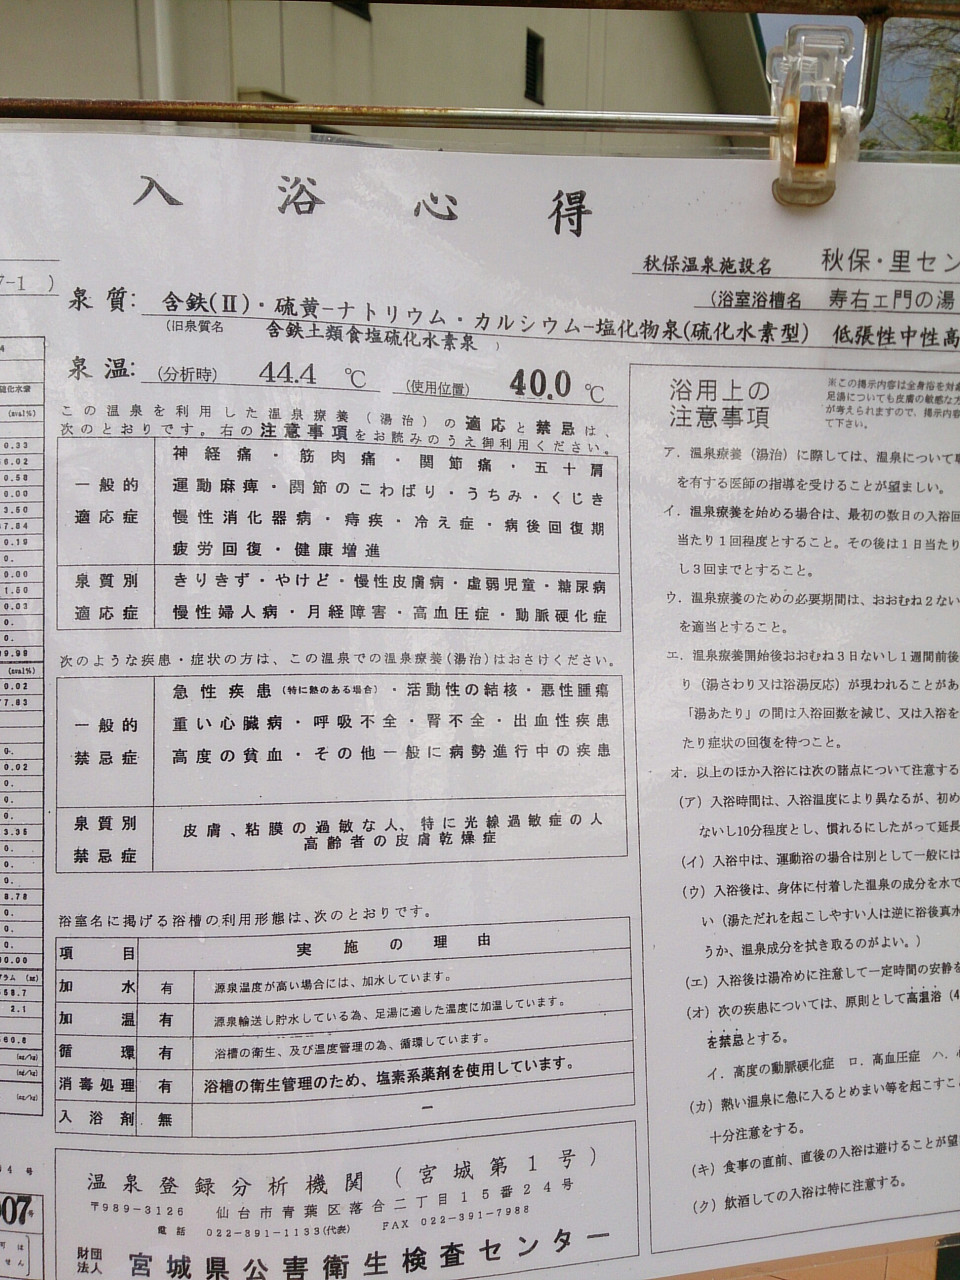 入浴心得
7-1 )
秋保温泉施設名 秋保・里セン
(浴室浴槽名 寿右エ門の湯
泉質: 含鉄(Ⅱ)・硫黄-ナトリウム・カルシウム-塩化物泉(硫化水素型) 低張性中性高
(旧泉質名 含鉄土類食塩硫化水素泉 )
泉温: (分析時) 44.4 ℃ (使用位置) 40.0 ℃
この温泉を利用した温泉療養(湯治)の適応と禁忌は、
次のとおりです。右の注意事項をお読みのうえ御利用ください。
一般的適応症
神経痛・筋肉痛・関節痛・五十肩
運動麻痺・関節のこわばり・うちみ・くじき
慢性消化器病・痔疾・冷え症・病後回復期
疲労回復・健康増進
泉質別適応症
きりきず・やけど・慢性皮膚病・虚弱児童・糖尿病
慢性婦人病・月経障害・高血圧症・動脈硬化症
次のような疾患・症状の方は、この温泉での温泉療養(湯治)はおさけください。
一般的禁忌症
急性疾患(特に熱のある場合)・活動性の結核・悪性腫瘍
重い心臓病・呼吸不全・腎不全・出血性疾患
高度の貧血・その他一般に病勢進行中の疾患
泉質別禁忌症
皮膚、粘膜の過敏な人、特に光線過敏症の人
高齢者の皮膚乾燥症
浴室名に掲げる浴槽の利用形態は、次のとおりです。
項目 実施の理由
加水 有 源泉温度が高い場合には、加水しています。
加温 有 源泉輸送し貯水している為、足湯に適した温度に加温しています。
循環 有 浴槽の衛生、及び温度管理の為、循環しています。
消毒処理 有 浴槽の衛生管理のため、塩素系薬剤を使用しています。
入浴剤 無 ー
温泉登録分析機関(宮城第1号)
〒989-3126 仙台市青葉区落合二丁目15番24号
電話 022-391-1133(代表) FAX 022-391-7988
財団法人 宮城県公害衛生検査センター
浴用上の
注意事項
※この掲示内容は全身浴を対象
足湯についても皮膚の敏感な方
が考えられますので、掲示内容
て下さい。
ア．温泉療養(湯治)に際しては、温泉について専
を有する医師の指導を受けることが望ましい。
イ．温泉療養を始める場合は、最初の数日の入浴回
当たり1回程度とすること。その後は1日当たり
し3回までとすること。
ウ．温泉療養のための必要期間は、おおむね2ない
を適当とすること。
エ．温泉療養開始後おおむね3日ないし1週間前後
り(湯さわり又は浴湯反応)が現われることがあ
「湯あたり」の間は入浴回数を減じ、又は入浴を
たり症状の回復を待つこと。
オ．以上のほか入浴には次の諸点について注意する
(ア)入浴時間は、入浴温度により異なるが、初め
ないし10分程度とし、慣れるにしたがって延長
(イ)入浴中は、運動浴の場合は別として一般には
(ウ)入浴後は、身体に付着した温泉の成分を水で
い(湯ただれを起こしやすい人は逆に浴後真水
うか、温泉成分を拭き取るのがよい。)
(エ)入浴後は湯冷めに注意して一定時間の安静を
(オ)次の疾患については、原則として高温浴(4
を禁忌とする。
イ．高度の動脈硬化症 ロ．高血圧症 ハ．心
(カ)熱い温泉に急に入るとめまい等を起こすこ
十分注意をする。
(キ)食事の直前、直後の入浴は避けることが望
(ク)飲酒しての入浴は特に注意する。